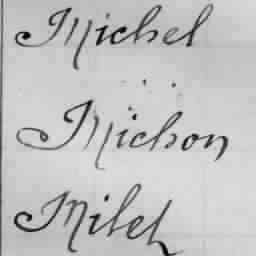 Michel
Michon
Milet